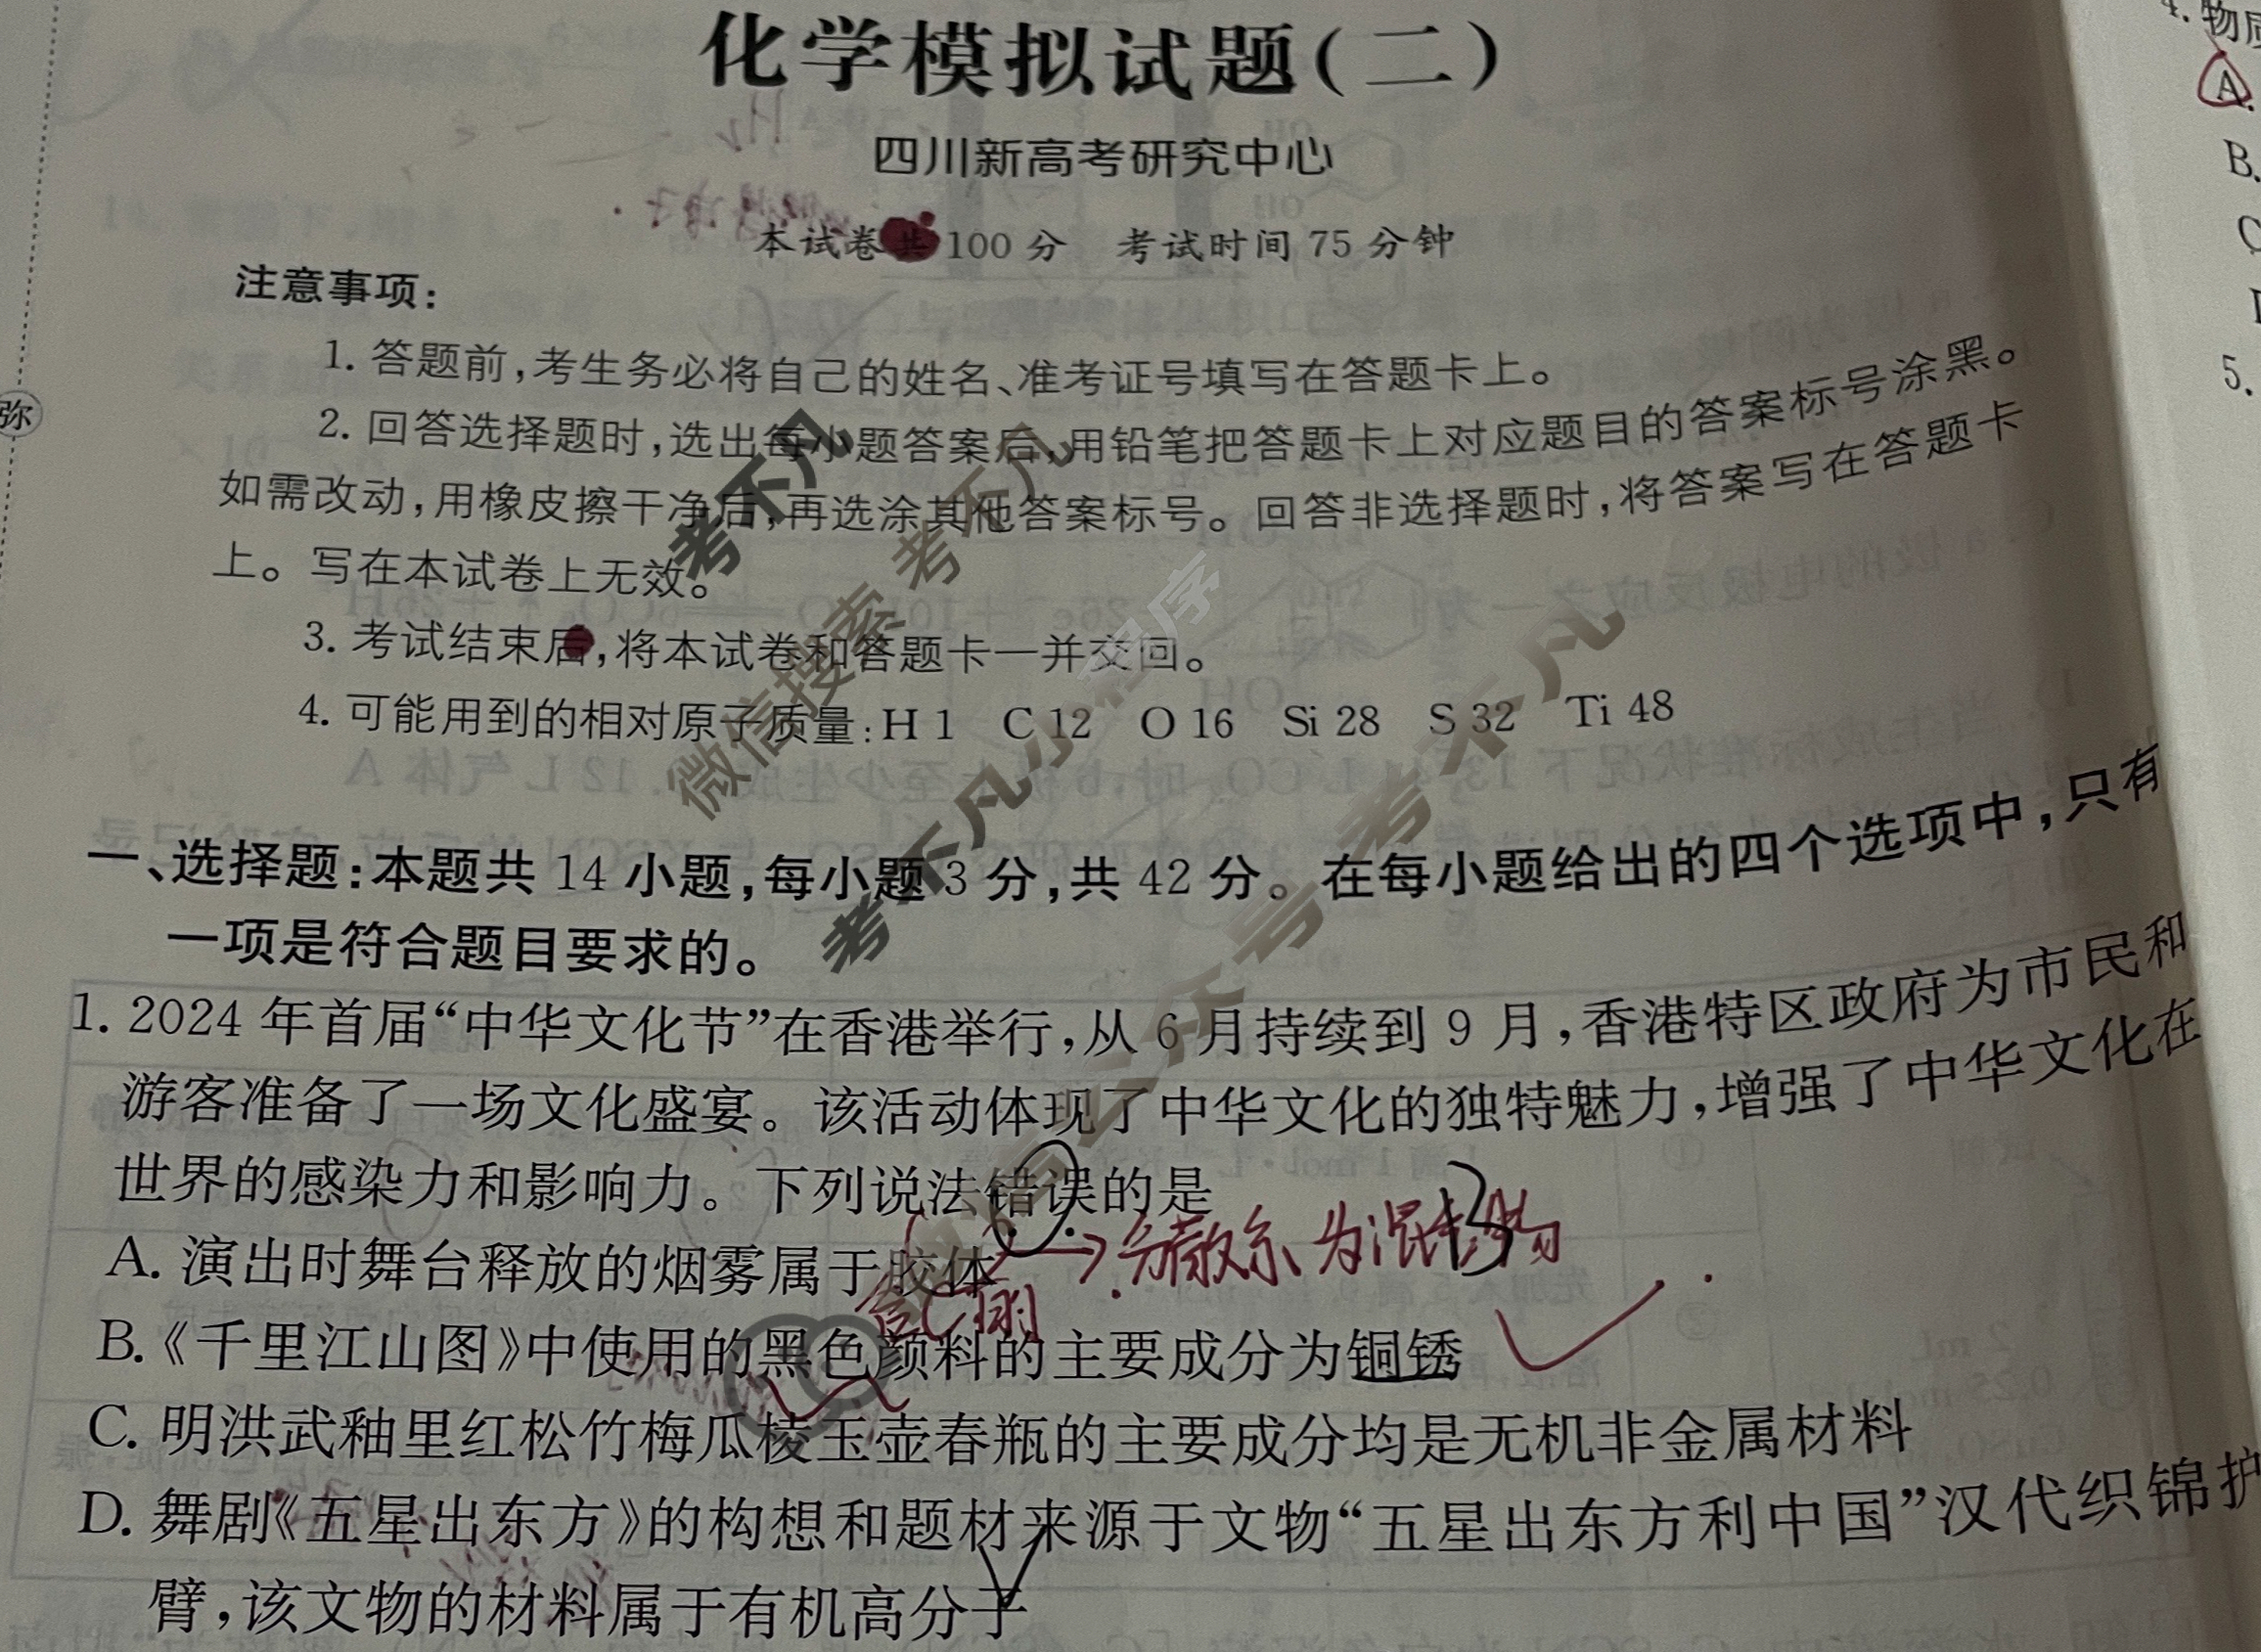 化学模拟试题(二)
四川新高考研究中心
本试卷共 100 分 考试时间 75 分钟
注意事项:
1. 答题前,考生务必将自己的姓名、准考证号填写在答题卡上。
2. 回答选择题时,选出每小题答案后,用铅笔把答题卡上对应题目的答案标号涂黑。
如需改动,用橡皮擦干净后,再选涂其他答案标号。回答非选择题时,将答案写在答题卡
上。写在本试卷上无效。
3. 考试结束后,将本试卷和答题卡一并交回。
4. 可能用到的相对原子质量:H 1 C 12 O 16 Si 28 S 32 Ti 48
一、选择题:本题共 14 小题,每小题 3 分,共 42 分。在每小题给出的四个选项中,只有
一项是符合题目要求的。
1. 2024 年首届“中华文化节”在香港举行,从 6 月持续到 9 月,香港特区政府为市民和
游客准备了一场文化盛宴。该活动体现了中华文化的独特魅力,增强了中华文化在
世界的感染力和影响力。下列说法错误的是
B
A. 演出时舞台释放的烟雾属于胶体
→分散系为混合物
B.《千里江山图》中使用的黑色颜料的主要成分为铜锈
C. 明洪武釉里红松竹梅瓜棱玉壶春瓶的主要成分均是无机非金属材料
D. 舞剧《五星出东方》的构想和题材来源于文物“五星出东方利中国”汉代织锦护
臂,该文物的材料属于有机高分子
弥
考不凡
微信搜索 考不凡
考不凡小程序
微信公众号 考不凡
4. 物质
A.
B.
5.